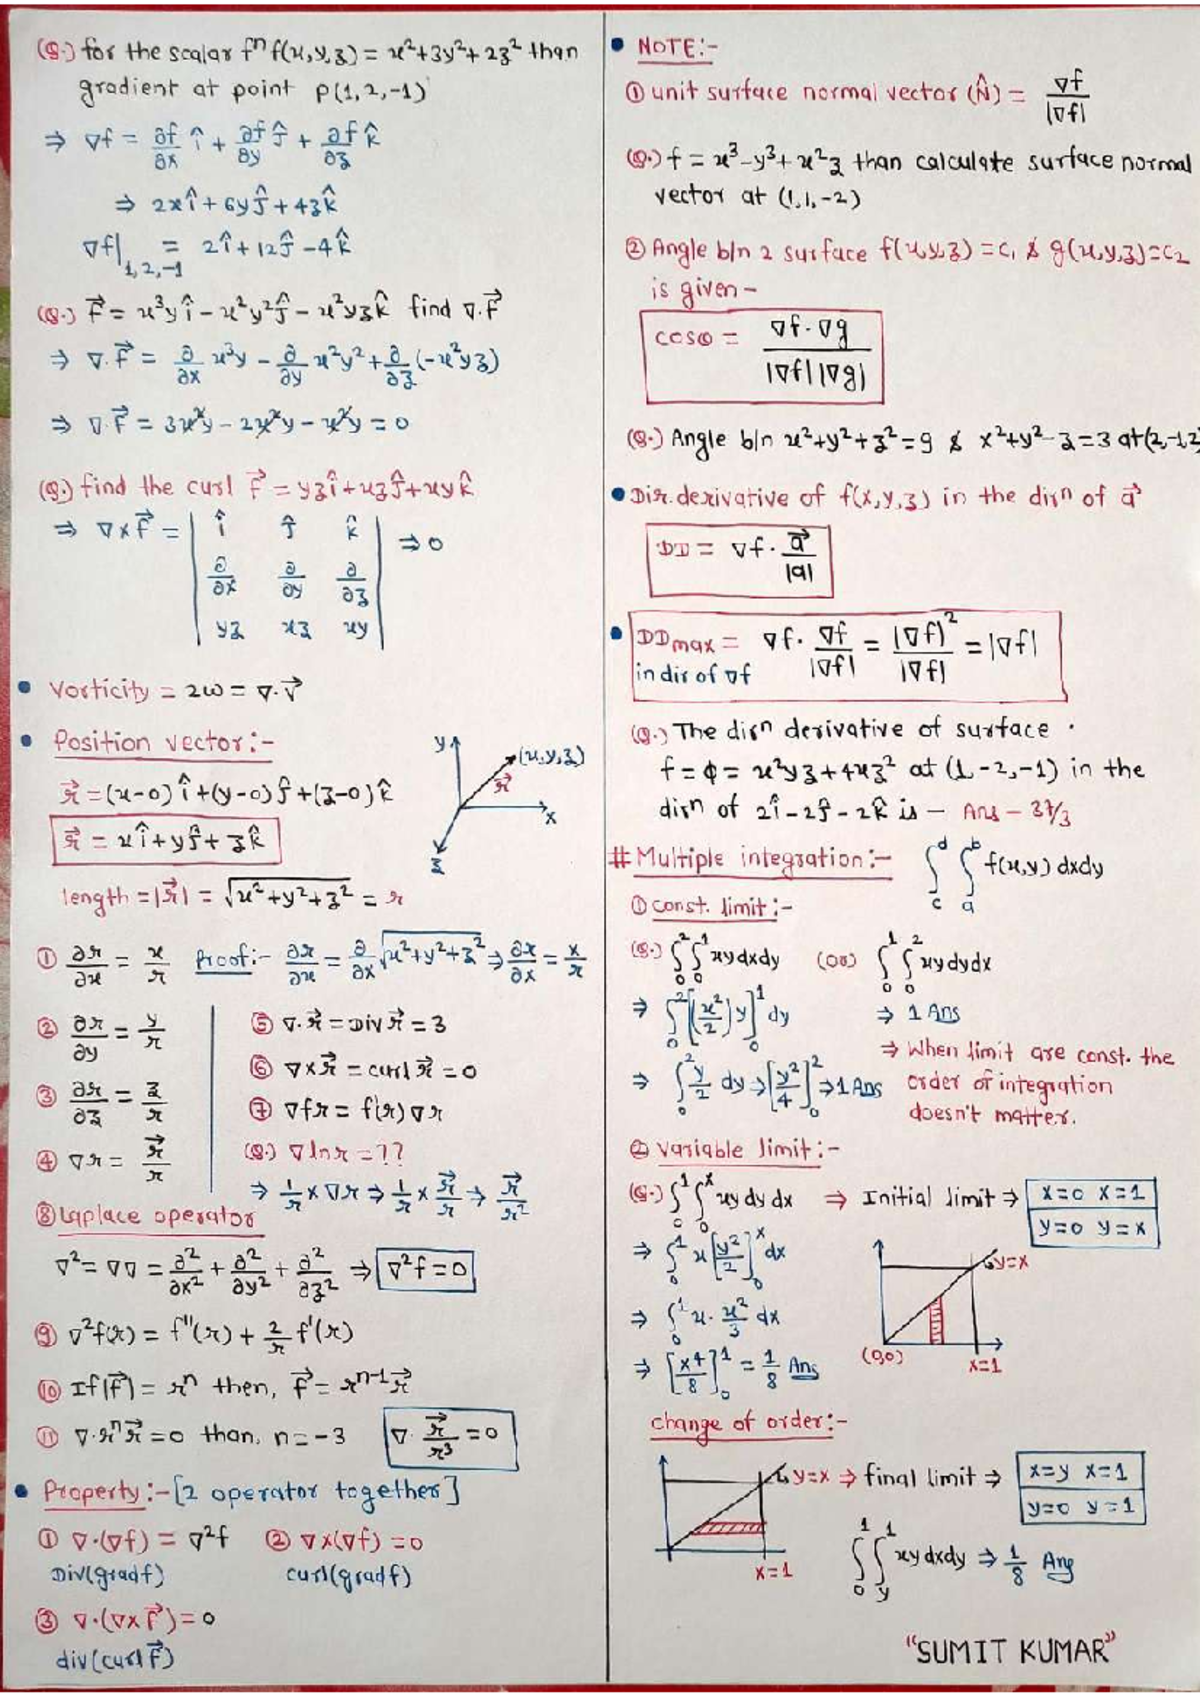 (Q.) for the scalar fⁿ f(x,y,z) = x²+3y²+2z² than
gradient at point P(1,2,-1)
⇒ ∇f = ∂f/∂x î + ∂f/∂y ĵ + ∂f/∂z k̂
⇒ 2xî + 6yĵ + 4zk̂
∇f|₁,₂,₋₁ = 2î + 12ĵ - 4k̂
(Q.) F⃗ = x³yî - x²y²ĵ - x²yzk̂ find ∇.F⃗
⇒ ∇.F⃗ = ∂/∂x x³y - ∂/∂y x²y² + ∂/∂z (-x²yz)
⇒ ∇.F⃗ = 3x²y - 2x²y - x²y = 0
(Q.) find the curl F⃗ = yzî + xzĵ + xyk̂
⇒ ∇×F⃗ = | î ĵ k̂ | ⇒ 0
∂/∂x ∂/∂y ∂/∂z
yz xz xy
• Vorticity = 2ω = ∇.V⃗
• Position vector:-
r⃗ = (x-0)î + (y-0)ĵ + (z-0)k̂
r⃗ = xî + yĵ + zk̂
y (x,y,z)
r⃗
x
z
length = |r⃗| = √x²+y²+z² = r
① ∂r/∂x = x/r Proof:- ∂r/∂x = ∂/∂x √x²+y²+z² ⇒ ∂r/∂x = x/r
② ∂r/∂y = y/r
③ ∂r/∂z = z/r
④ ∇r = r⃗/r
⑤ ∇.r⃗ = Div r⃗ = 3
⑥ ∇×r⃗ = curl r⃗ = 0
⑦ ∇fr = f'(r)∇r
(Q.) ∇lnr = ??
⇒ 1/r × ∇r ⇒ 1/r × r⃗/r ⇒ r⃗/r²
⑧ Laplace operator
∇² = ∇∇ = ∂²/∂x² + ∂²/∂y² + ∂²/∂z² ⇒ ∇²f = 0
⑨ ∇²f(r) = f''(r) + 2/r f'(r)
⑩ If |F⃗| = rⁿ then, F⃗ = rⁿ⁻¹r⃗
⑪ ∇.rⁿr⃗ = 0 than, n = -3 ∇. r⃗/r³ = 0
• Property:- [2 operator together]
① ∇.(∇f) = ∇²f ② ∇×(∇f) = 0
Div(gradf) curl(gradf)
③ ∇.(∇×F⃗) = 0
div(curl F⃗)
• NOTE:-
① unit surface normal vector (N̂) = ∇f/|∇f|
(Q.) f = x³-y³+x²z than calculate surface normal
vector at (1,1,-2)
② Angle b/n 2 surface f(x,y,z) = c₁ & g(x,y,z) = c₂
is given -
cosθ = ∇f.∇g/|∇f||∇g|
(Q.) Angle b/n x²+y²+z² = 9 & x²+y²-z = 3 at (2,-1,2)
• Dir. derivative of f(x,y,z) in the dirⁿ of a⃗
DD = ∇f. a⃗/|a|
• DDmax = ∇f. ∇f/|∇f| = |∇f|²/|∇f| = |∇f|
in dir of ∇f
(Q.) The dirⁿ derivative of surface .
f = ϕ = x²yz + 4xz² at (1,-2,-1) in the
dirⁿ of 2î - 2ĵ - 2k̂ is - Ans - 37/3
# Multiple integration:- ∫_c^d ∫_a^b f(x,y) dxdy
① const. limit:-
(Q.) ∫₀² ∫₀¹ xy dxdy (Or) ∫₀¹ ∫₀² xy dydx
⇒ ∫₀² [(x²/2) y]₀¹ dy ⇒ 1 Ans
⇒ ∫₀² y/2 dy ⇒ [y²/4]₀² ⇒ 1 Ans
⇒ When limit are const. the
order of integration
doesn't matter.
② Variable limit:-
(Q.) ∫₀¹ ∫₀ˣ xy dy dx ⇒ Initial limit ⇒ x=0 x=1
y=0 y=x
⇒ ∫₀¹ x [y²/2]₀ˣ dx
⇒ ∫₀¹ x. x²/3 dx
⇒ [x⁴/8]₀¹ = 1/8 Ans
y=x
(0,0) x=1
change of order:-
y=x ⇒ final limit ⇒ x=y x=1
y=0 y=1
x=1
∫₀¹ ∫_y^1 xy dxdy ⇒ 1/8 Ans
"SUMIT KUMAR"